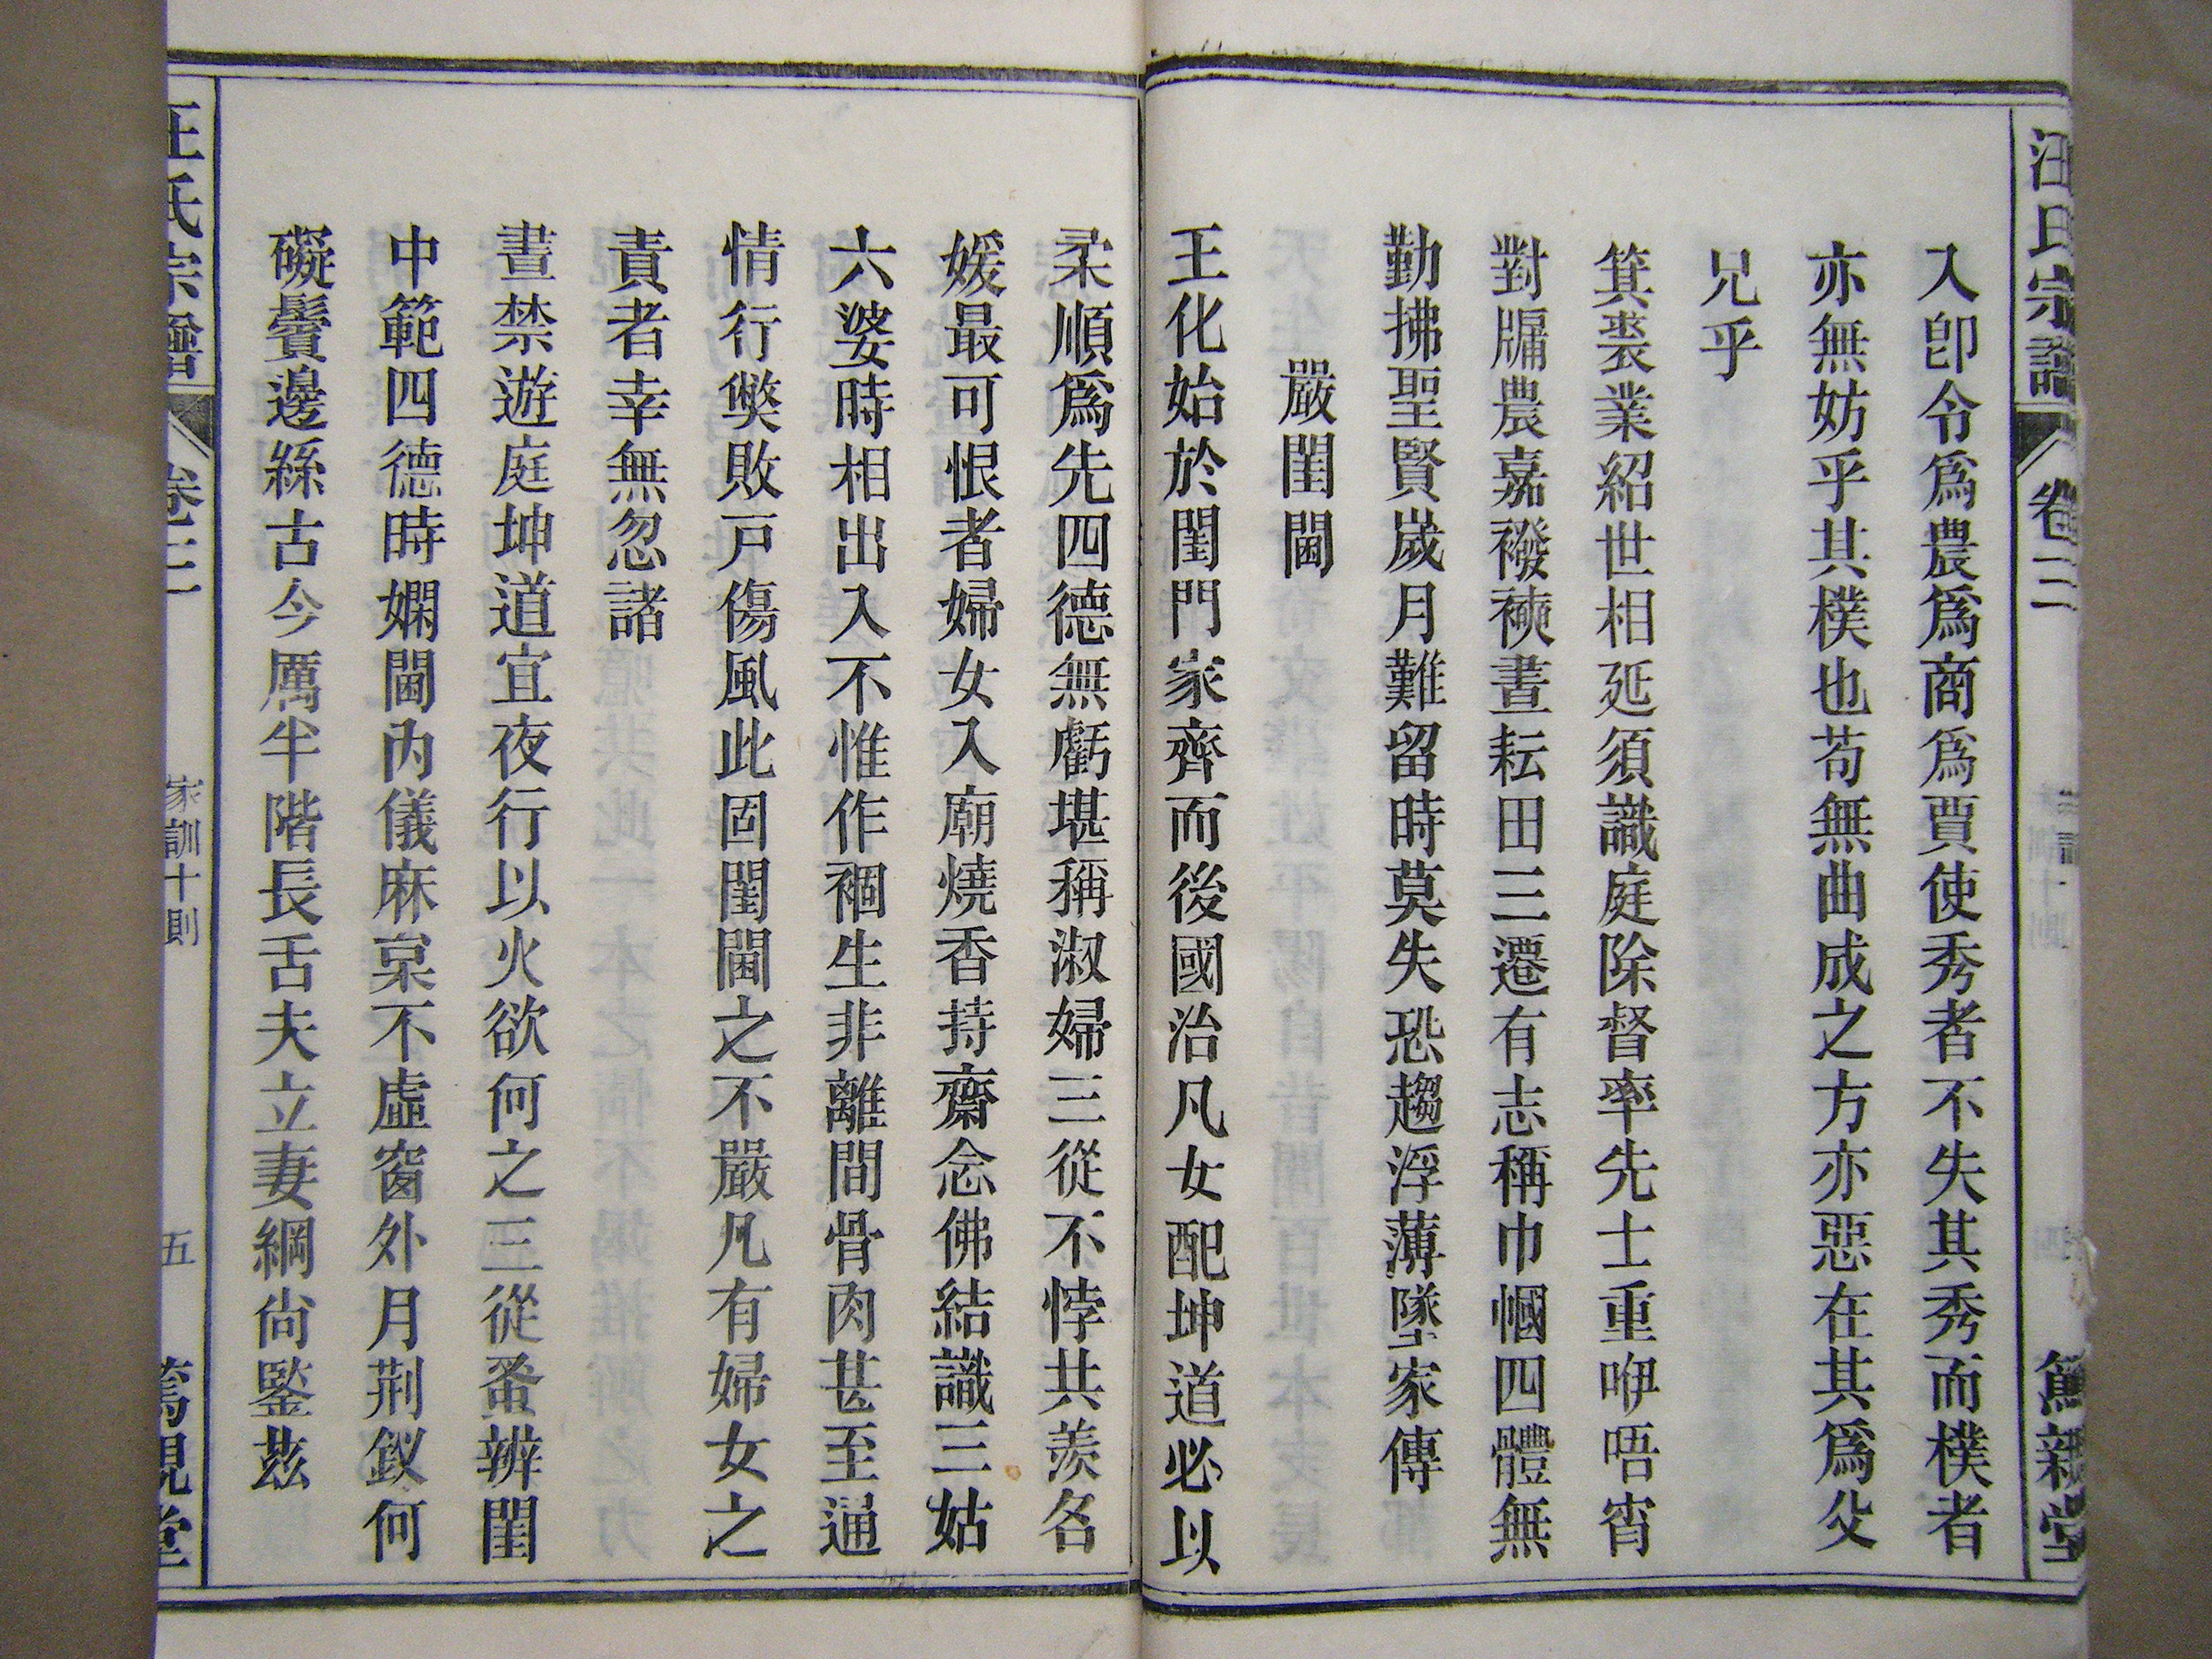 汪氏宗譜 卷三 篤親堂
入卽令爲農爲商爲賈使秀者不失其秀而樸者
亦無妨乎其樸也苟無曲成之方亦惡在其爲父
兄乎
箕裘業紹世相延須識庭除督率先士重咿唔宵
對牖農嘉襏襫晝耘田三遷有志稱巾幗四體無
勤拂聖賢歲月難留時莫失恐趨浮薄墜家傳
嚴閨閫
王化始於閨門家齊而後國治凡女配坤道必以
柔順爲先四德無虧堪稱淑婦三從不悖共羨名
媛最可恨者婦女入廟燒香持齋念佛結識三姑
六婆時相出入不惟作禍生非離間骨肉甚至通
情行獘敗戸傷風此固閨閫之不嚴凡有婦女之
責者幸無忽諸
晝禁遊庭坤道宜夜行以火欲何之三從蚤辨閨
中範四德時嫻閫內儀麻枲不虛窗外月荆釵何
礙鬢邊絲古今厲半階長舌夫立妻綱尙鑒茲
汪氏宗譜 卷三 家訓十則 五 篤親堂